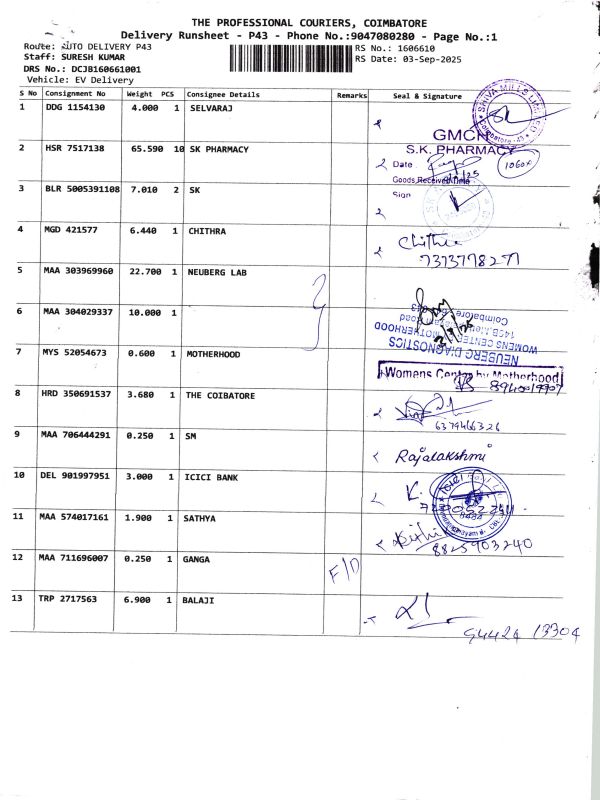 THE PROFESSIONAL COURIERS, COIMBATORE
Delivery Runsheet - P43 - Phone No.:9047080280 - Page No.:1
Route: AUTO DELIVERY P43 RS No.: 1606610
Staff: SURESH KUMAR RS Date: 03-Sep-2025
DRS No.: DCJB160661001
Vehicle: EV Delivery
S No Consignment No Weight PCS Consignee Details Remarks Seal & Signature
1 DDG 1154130 4.000 1 SELVARAJ
SHIVA MILLS LIMITED
GMCH
2 HSR 7517138 65.590 10 SK PHARMACY S.K. PHARMACY
Date
Goods Received Time
Sign
3 BLR 5005391108 7.010 2 SK
4 MGD 421577 6.440 1 CHITHRA Chithra
7373778271
5 MAA 303969960 22.700 1 NEUBERG LAB
6 MAA 304029337 10.000 1
NEUBERG DIAGNOSTICS
WOMENS CENTER MOTHERHOOD
Coimbatore
7 MYS 52054673 0.600 1 MOTHERHOOD Womens Center by Motherhood
8940019907
8 HRD 350691537 3.680 1 THE COIBATORE
6379466326
9 MAA 706444291 0.250 1 SM Rajalakshmi
10 DEL 901997951 3.000 1 ICICI BANK K.
11 MAA 574017161 1.900 1 SATHYA
8825903240
12 MAA 711696007 0.250 1 GANGA F/D
13 TRP 2717563 6.900 1 BALAJI
94424 13304